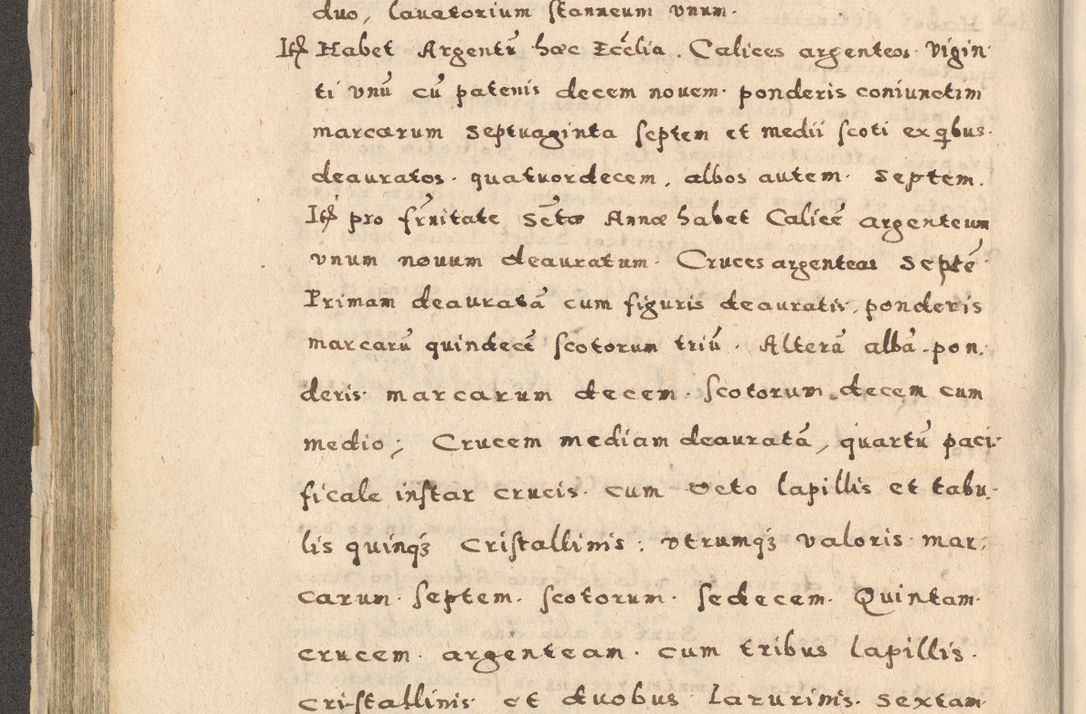 duo, lauatorium stanneum vnum.
Itẽ Habet Argentũ hæc Eccľia. Calices argenteos vigin
ti vnũ cũ patenis decem nouem. ponderis coniunctim
marcarum septuaginta septem et medii scoti ex qbus.
deauratos. quatuordecem, albos autem. septem.
Itẽ pro frñitate Sctæ Annæ habet Calicẽ argenteum
vnum nouum deauratum. Cruces argenteas septẽ
Primam deauratã cum figuris deauratis, ponderis
marcarũ quindecẽ scotorum triũ. Alterã albã pon,
deris. marcarum decem. scotorum decem cum
medio; Crucem mediam deauratã, quartũ paci-
ficale instar crucis. cum octo lapillis et tabu-
lis quinqȝ cristallinis: vtrumqȝ valoris mar:
carum. septem. scotorum. sedecem. Quintam
crucem. argenteam. cum tribus lapillis.
cristallinis et duobus lazurinis. sextam